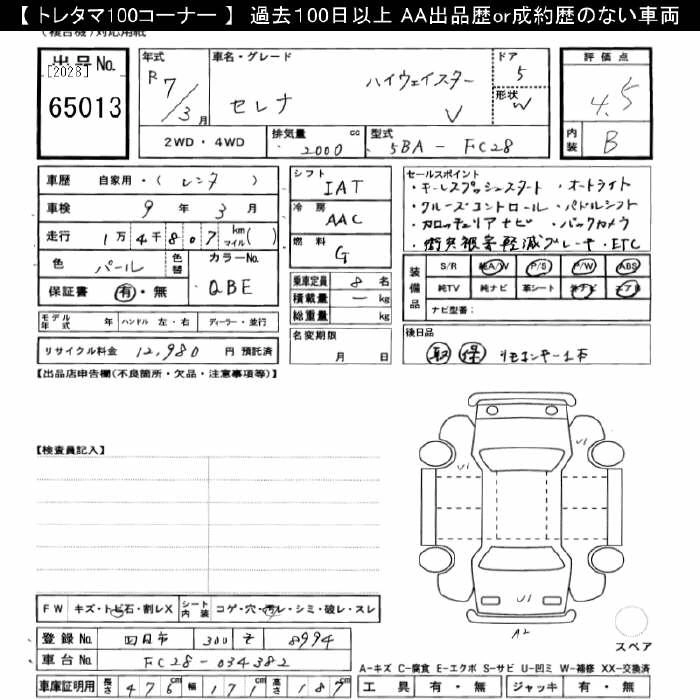 【 トレタマ100コーナー 】 過去100日以上 AA出品歴or成約歴のない車両
出品No.
[2028]
65013
年式
R 7/3月
車名・グレード
セレナ ハイウェイスター V
ドア
5
形状
W
2WD・4WD
排気量
2000 cc
型式
5BA-FC28
評価点
4.5
内装
B
車歴 自家用・(レンタ)
車検 9年3月
走行 1万4千807 km マイル( )
色 パール 色替
カラーNo.
QBE
保証書 有・無
モデル年式 年 ハンドル 左・右 ディーラー・並行
リサイクル料金 12,980 円 預託済
シフト
IAT
冷房
AAC
燃料
G
乗車定員 8 名
積載量 ー kg
総重量 kg
名変期限
月 日
セールスポイント
・キーレスプッシュスタート ・オートライト
・クルーズコントロール ・パドルシフト
・カロッチェリアナビ ・バックカメラ
・衝突被害軽減ブレーキ・ETC
装備品
S/R 純A/W P/S P/W ABS
純TV 純ナビ 革シート 社ナビ エアB
ナビ型番:
後日品
取 保 リモコンキー1本
【出品店申告欄(不良箇所・欠品・注意事項等)】
【検査員記入】
U1
U1
U1
A2
FW キズ・トビ石・割レX シート内装 コゲ・穴・汚レ・シミ・破レ・スレ
登録No. 四日市 300 そ 8994
車台No. FC28-034382
スペア
A-キズ C-腐食 E-エクボ S-サビ U-凹ミ W-補修 XX-交換済
車庫証明用 長さ 476cm 幅 171cm 高さ 187cm
工具 有・無 ジャッキ 有・無